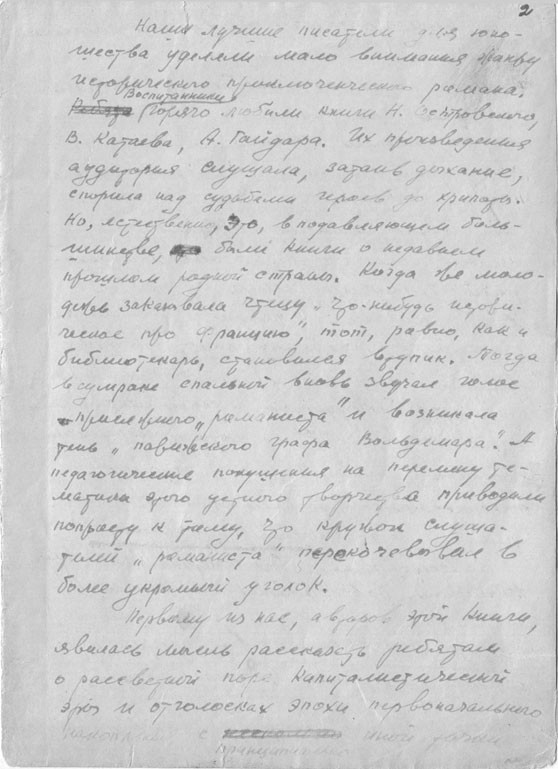 2
Наши лучшие писатели для юно-
шества уделяли мало внимания жанру
исторического приключенческого романа.
Воспитанники
горячо любили книги Н. Островского,
В. Катаева, А. Гайдара. Их произведения
аудитория слушала, затаив дыхание,
спорила над судьбами героев до хрипоты.
Но, естественно, это, в подавляющем боль-
шинстве, были книги о недавнем
прошлом родной страны. Когда же моло-
дежь заказывала чтецу „что-нибудь истори-
ческое про Францию", тот, равно, как и
библиотекарь, становился в тупик. Тогда
в сумраке спальной вновь звучал голос
присяжного „романиста" и возникала
тень „павижского графа Вольдемара". А
педагогические покушения на перемену те-
матики этого устного творчества приводили
попросту к тому, что кружок слуша-
телей „романиста" перекочевывал в
более укромный уголок.
Первому из нас, авторов этой книги,
явилась мысль рассказать ребятам
о рассветной поре капиталистической
эры и отголосках эпохи первоначального
накопления с иной точки
принципиально